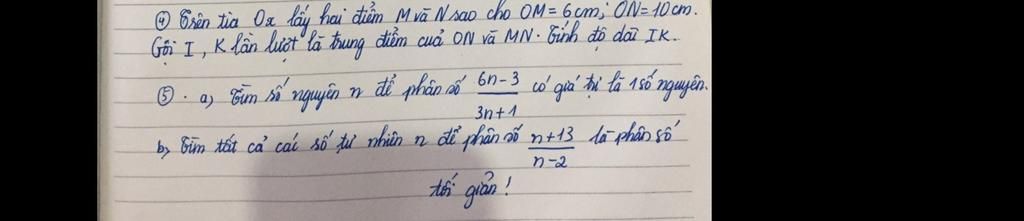 ④ Trên tia Ox lấy hai điểm M và N sao cho OM = 6cm; ON = 10cm.
Gọi I, K lần lượt là trung điểm cuả ON và MN. Tính độ dài IK.
⑤. a, Tìm số nguyên n để phân số 6n-3/3n+1 có giá trị là 1 số nguyên.
b, Tìm tất cả các số tự nhiên n để phân số n+13/n-2 là phân số
tối giản!